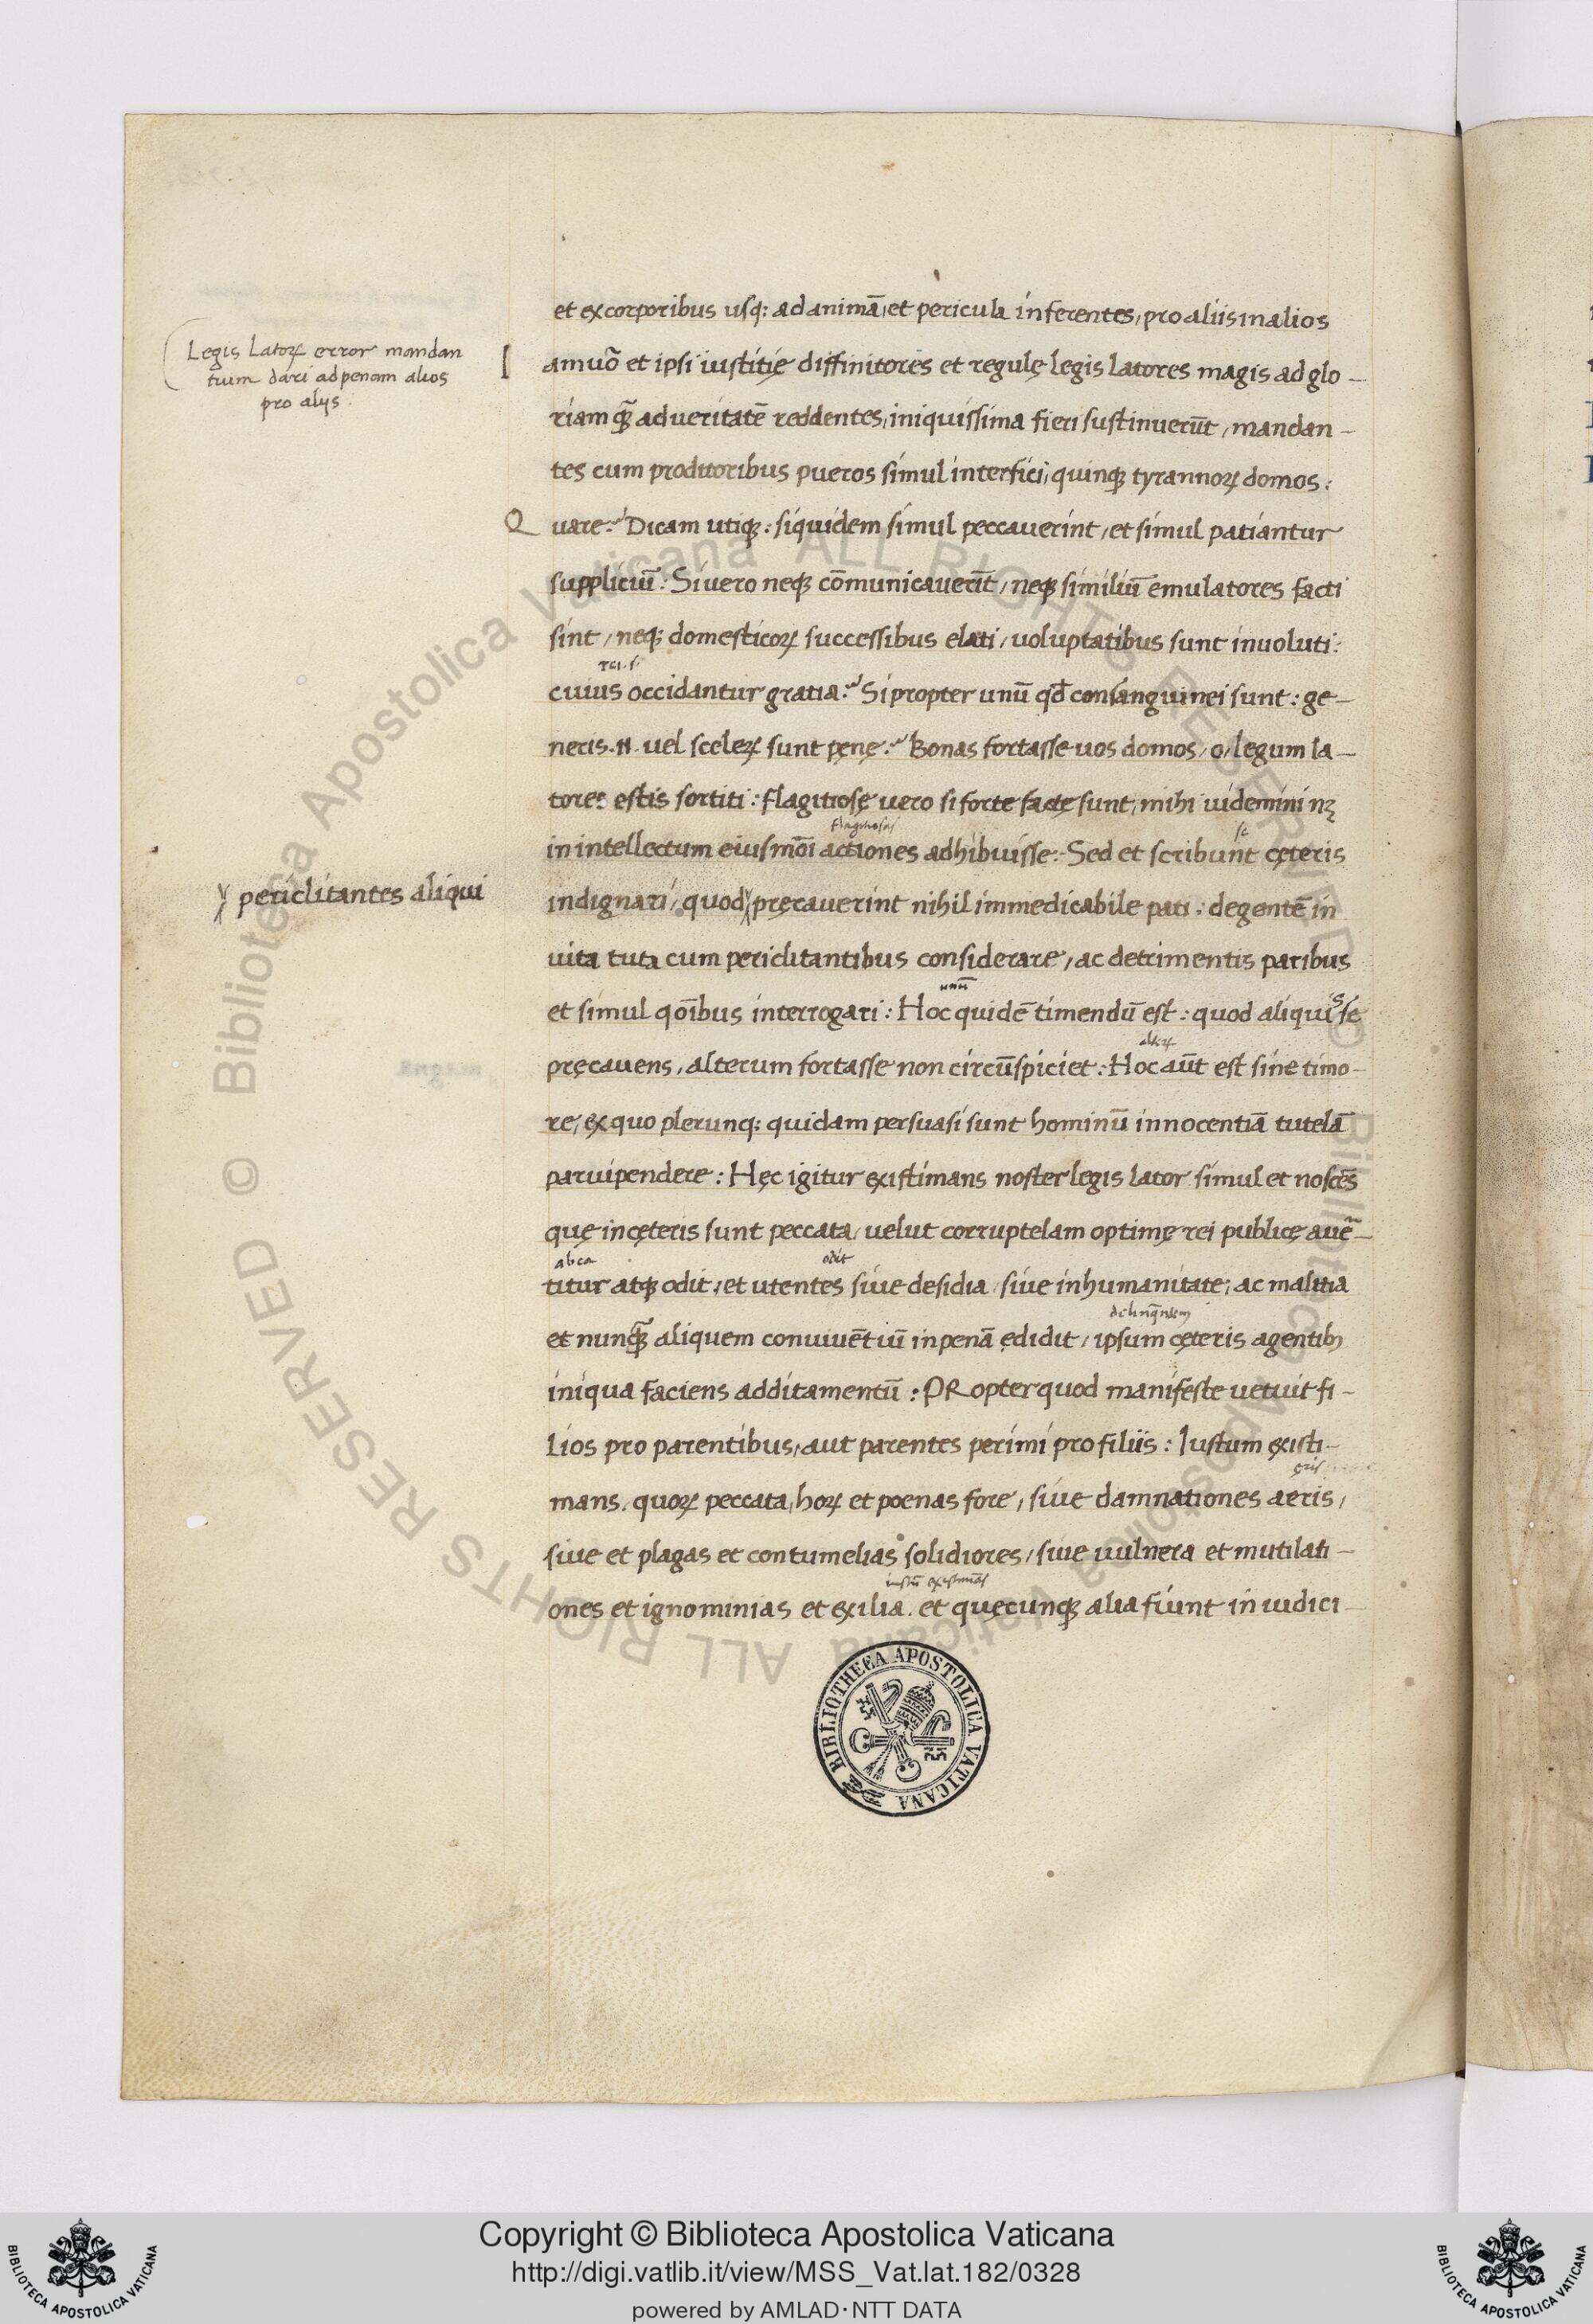 et ex corporibus usq: ad animā, et pericula inferentes, pro aliis in alios
Legis Latoꝝ error mandan
tium dari ad penam alios
pro alijs.
I amuō et ipsi iustitię diffinitores et regulę legis latores magis ad glo-
riam qȝ̃ ad veritatē reddentes, iniquissima fieri sustinuerūt, mandan-
tes cum proditoribus pueros simul interfici, quinqȝ tyrannoꝝ domos:
Q uare? Dicam utiqȝ: siquidem simul peccaverint, et simul patiantur
suppliciū: Si vero neqȝ cōmunicaverīt, neqȝ similiū emulatores facti
sint, neqȝ domesticoꝝ successibus elati, voluptatibus sunt involuti:
rei.s.
cuius occidantur gratia? Si propter unū qđ consanguinei sunt: ge-
neris .n. vel sceleꝝ sunt pęnę? Bonas fortasse vos domos, o, legum la-
tores estis sortiti: flagitiosę vero si forte factę sunt, mihi videmini nȝ
flagitiosas
se
in intellectum eiusmōi actiones adhibuisse: Sed et scribunt cęteris
indignari, quod pręcaverint nihil immedicabile pati: degentē in
periclitantes aliqui
vita tuta cum periclitantibus considerare, ac detrimentis paribus
unū
et simul qōibus interrogari: Hoc quidē timendū est: quod aliquis se
pręcavens, alterum fortasse non circūspiciet: Hoc aūt est sine timo-
re, ex quo plerunq: quidam persuasi sunt hominū innocentiā tutelā
parvipendere: Hęc igitur existimans noster legis lator simul et noscēs
quę in cęteris sunt peccata, velut corruptelam optimę rei publicę avē-
odit
titur atqȝ odit, et utentes sive desidia, sive inhumanitate, ac malitia
delinquentem
et nunqȝ̃ aliquem conviventiū in penā ędidit, ipsum cęteris agentibȝ
iniqua faciens additamentū: PRopter quod manifeste vetuit fi-
lios pro parentibus, aut parentes perimi pro filiis: Iustum existi-
mans. quoꝝ peccata, hoꝝ et poenas fore, sive damnationes aeris,
sive et plagas et contumelias solidiores, sive vulnera et mutilati-
iustū existimās
ones et ignominias et exilia. et quęcunqȝ alia fiunt in iudici-
BIBLIOTHECA APOSTOLICA VATICANA
© Biblioteca Apostolica Vaticana ALL RIGHTS RESERVED
© Biblioteca Apostolica Vaticana ALL RIGHTS RESERVED
Copyright © Biblioteca Apostolica Vaticana
http://digi.vatlib.it/view/MSS_Vat.lat.182/0328
powered by AMLAD·NTT DATA
BIBLIOTECA APOSTOLICA VATICANA
BIBLIOTECA APOSTOLICA VATICANA